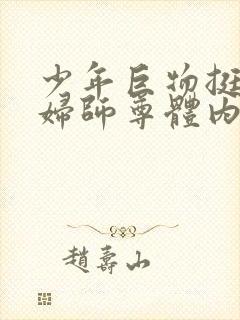 少年巨物挺
婦師尊體內
趙壽山